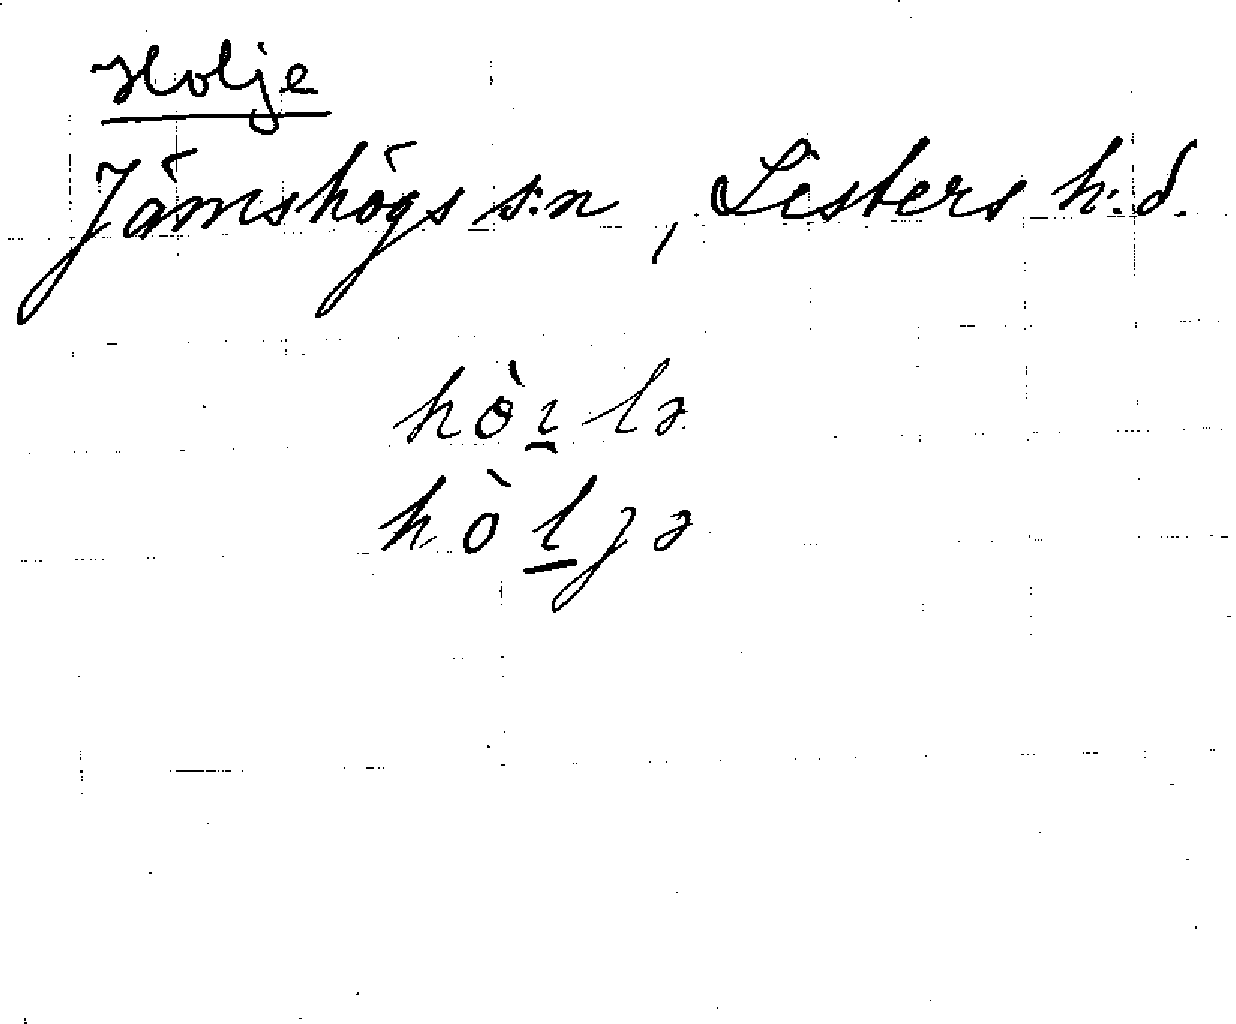 Holje
Jämshögs s:n, Listers h:d.
hò̵ı̱lə
hòl̲jə